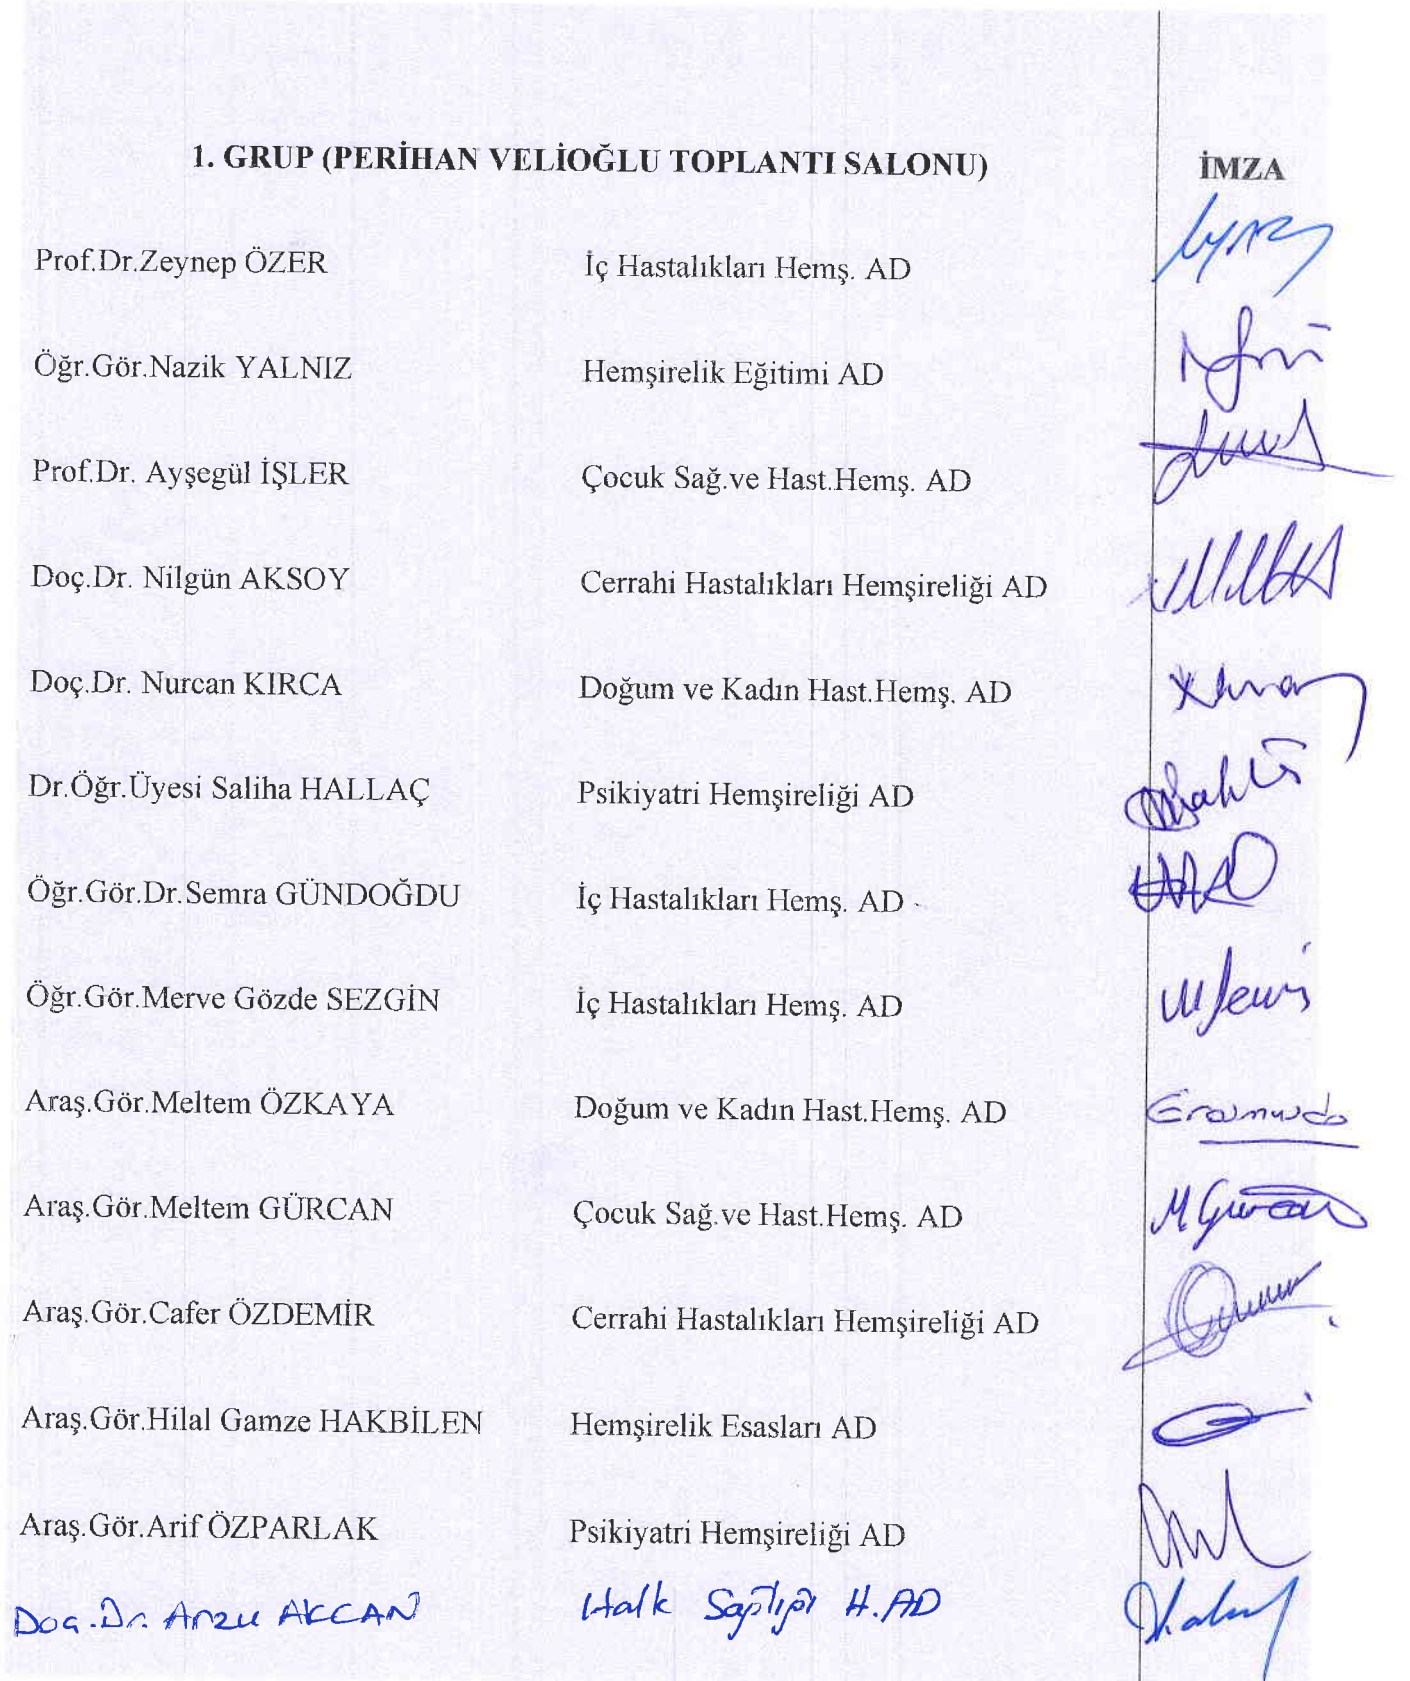 1. GRUP (PERİHAN VELİOĞLU TOPLANTI SALONU) İMZA
Prof.Dr.Zeynep ÖZER İç Hastalıkları Hemş. AD
Öğr.Gör.Nazik YALNIZ Hemşirelik Eğitimi AD
Prof.Dr. Ayşegül İŞLER Çocuk Sağ.ve Hast.Hemş. AD
Doç.Dr. Nilgün AKSOY Cerrahi Hastalıkları Hemşireliği AD
Doç.Dr. Nurcan KIRCA Doğum ve Kadın Hast.Hemş. AD
Dr.Öğr.Üyesi Saliha HALLAÇ Psikiyatri Hemşireliği AD
Öğr.Gör.Dr.Semra GÜNDOĞDU İç Hastalıkları Hemş. AD
Öğr.Gör.Merve Gözde SEZGİN İç Hastalıkları Hemş. AD
Araş.Gör.Meltem ÖZKAYA Doğum ve Kadın Hast.Hemş. AD Erasmusda
Araş.Gör.Meltem GÜRCAN Çocuk Sağ.ve Hast.Hemş. AD M Gürcan
Araş.Gör.Cafer ÖZDEMİR Cerrahi Hastalıkları Hemşireliği AD
Araş.Gör.Hilal Gamze HAKBİLEN Hemşirelik Esasları AD
Araş.Gör.Arif ÖZPARLAK Psikiyatri Hemşireliği AD
Doç.Dr. Arzu AKCAN Halk Sağlığı H.AD